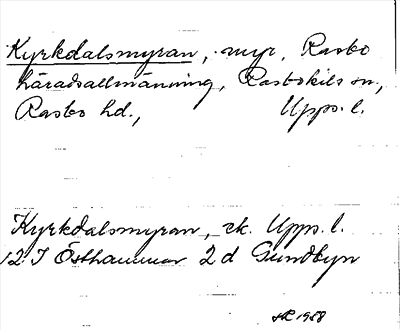 Kyrkdalsmyran, myr, Rasbo
häradsallmänning, Rasbokils sn,
Rasbo hd., Upps. l.
Kyrkdalsmyran, ek. Upps. l.
12 I Östhammar 2 d Gundbyn
1958